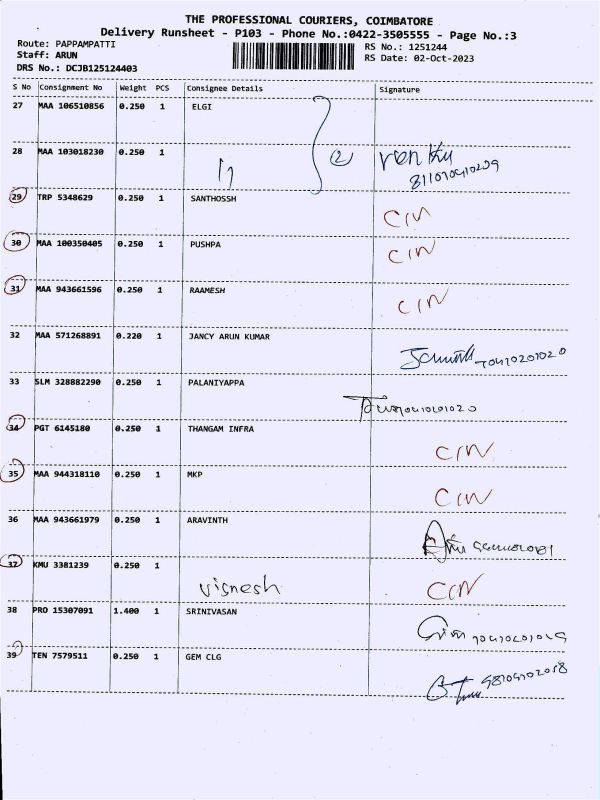 THE PROFESSIONAL COURIERS, COIMBATORE
Delivery Runsheet - P103 - Phone No.:0422-3505555 - Page No.:3
Route: PAPPAMPATTI RS No.: 1251244
Staff: ARUN RS Date: 02-Oct-2023
DRS No.: DCJB125124403
S No Consignment No Weight PCS Consignee Details Signature
27 MAA 106510856 0.250 1 ELGI
28 MAA 103018230 0.250 1 (2)
29 TRP 5348629 0.250 1 SANTHOSSH CIN
30 MAA 100350405 0.250 1 PUSHPA CIN
31 MAA 943661596 0.250 1 RAAMESH CIN
32 MAA 571268891 0.220 1 JANCY ARUN KUMAR
33 SLM 328882290 0.250 1 PALANIYAPPA
34 PGT 6145180 0.250 1 THANGAM INFRA CIN
35 MAA 944318110 0.250 1 MKP CIN
36 MAA 943661979 0.250 1 ARAVINTH
37 KMU 3381239 0.250 1 Vignesh CIN
38 PRO 15307091 1.400 1 SRINIVASAN
39 TEN 7579511 0.250 1 GEM CLG